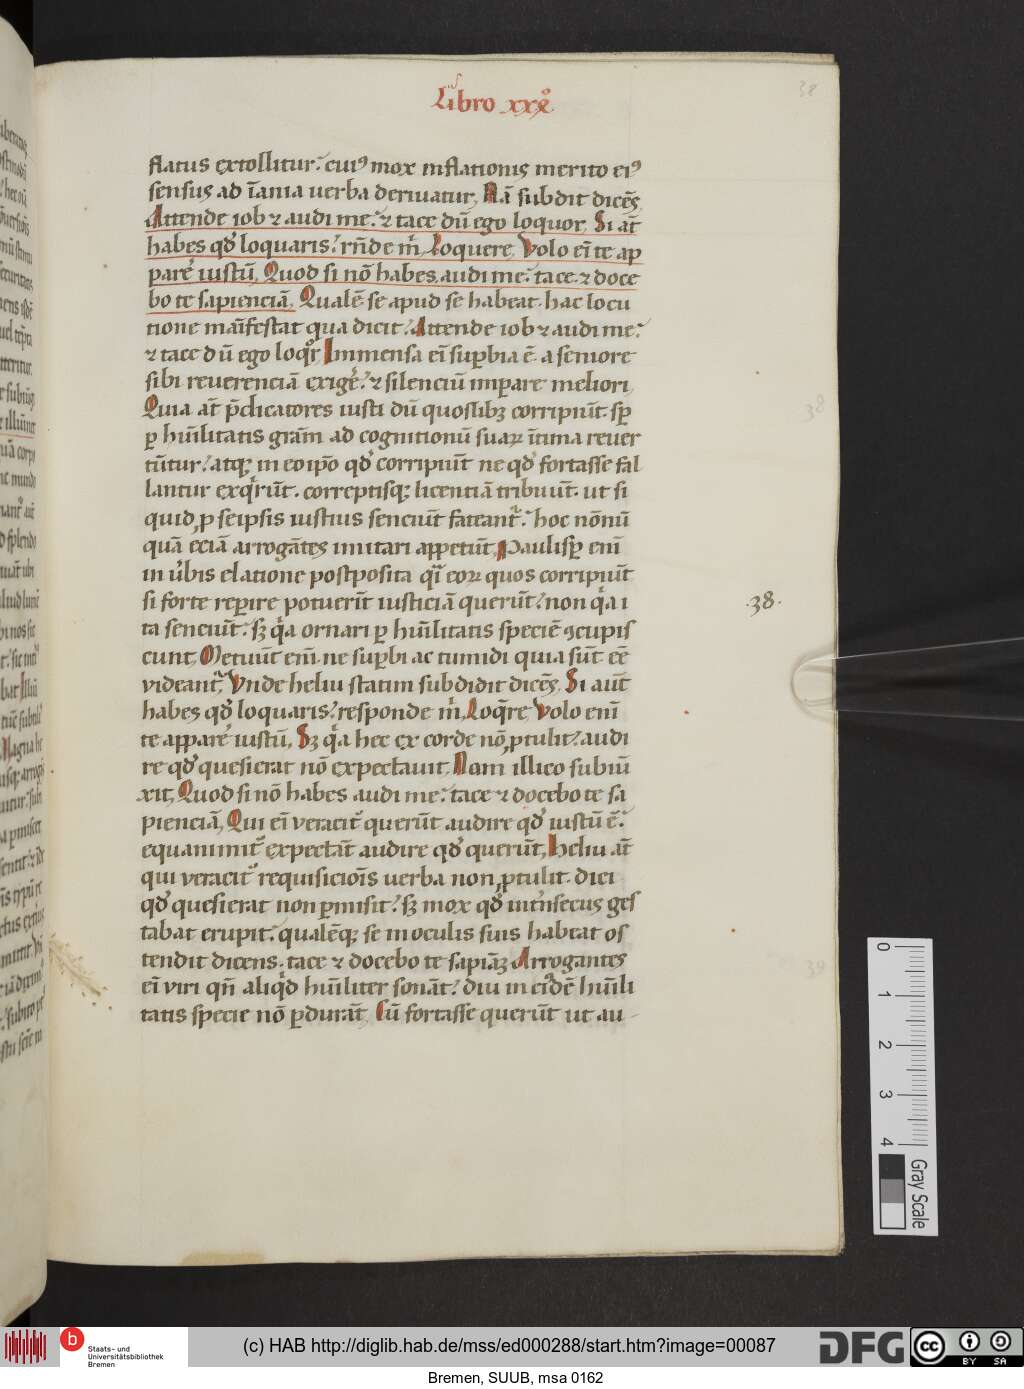 Libro xxͦ
flatus extollitur: cuiꝰ mox inflationis merito eiꝰ
sensus ad īania uerba deriuatur. Nā subdit dicēs.
Attende iob ⁊ audi me: ⁊ tace dū ego loquor. Si aūt
habes qđ loquaris: rn̄de m̄. Loquere. Volo eī te ap
parē iustū. Quod si nō habes. audi me: tace. ⁊ doce
bo te sapienciā. Qualē se apud se habeat. hac locu
tione maīfestat qua dicit: Attende iob ⁊ audi me:
⁊ tace dū ego loqͦr. Immensa eī suꝑbia ē. a seniore
sibi reuerenciā exigē: ⁊ silenciū imꝑare meliori.
Quia āt p̄dicatores iusti dū quoslibꝫ corripiūt. sꝑ
ꝑ hūilitatis grām ad cognitionū suaꝝ ītima reuer
tūtur: atqꝫ in eo ip̄o qđ corripiūt ne qđ fortasse fal
lantur exqͥrūt. correptisqꝫ licentiā tribuūt. ut si
quid ꝓ seipsis iustius senciūt fateant᷑: hoc nōnū
quā eciā arrogātes imitari appetūt. Paulisꝑ enī
in ūbis elatione postposita qͣi eoꝝ quos corripiūt
si forte reꝑire potuerīt iusticiā querūt: non qͥa i
ta senciūt: sꝫ qͥa ornari ꝑ hūilitatis speciē ꝯcupis
cunt. Metuūt enī. ne suꝑbi ac tumidi quia sūt. eē
videant᷑. Vnde heliu statim subdidit dicēs. Si aūt
habes qđ loquaris: responde m̄. Loqͥre. Volo enī
te apparē iustū. Sꝫ qͥa hec ex corde nō ꝓtulit: audi
re qđ quesierat nō expectauit. Nam illico subiū
xit. Quod si nō habes audi me: tace ⁊ docebo te sa
pienciā. Qui eī veracit᷑ querūt audire qđ iustū ē:
equanimit᷑ expectāt audire qđ querūt. heliu āt
qui veracit᷑ requisiciōis uerba non ꝓtulit. dici
qđ quesierat non ꝑmisit: sꝫ mox qđ int̄nsecus ges
tabat erupit: qualēqꝫ se in oculis suis habeat os
tendit dicens. tace ⁊ docebo te sapiāꝫ. Arrogantes
eī viri qn̄ aliqͥd hūiliter sonāt: diu in eādē hūili
tatis specie nō ꝑdurāt. Cū fortasse querūt ut au-
.38.
38
38
39
0 1 2 3 4
Gray Scale
b Staats- und
Universitätsbibliothek
Bremen
(c) HAB http://diglib.hab.de/mss/ed000288/start.htm?image=00087
DFG
cc BY SA
Bremen, SUUB, msa 0162